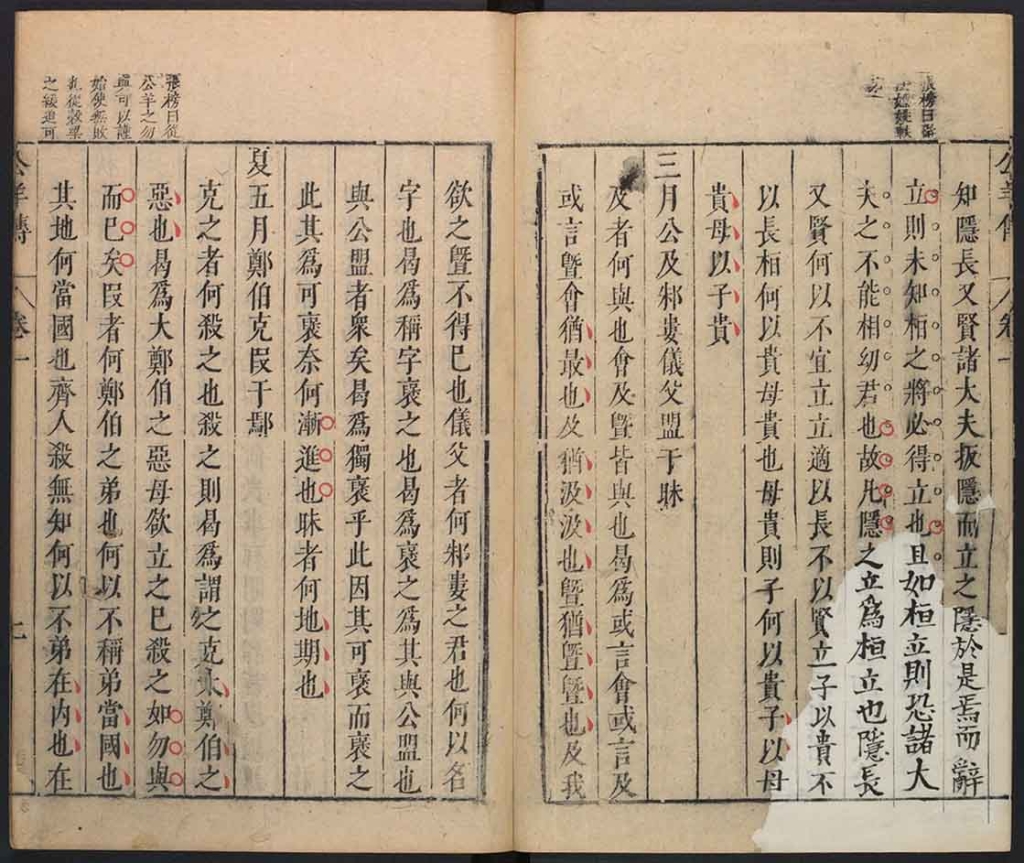 公羊傳
卷一
知隱長又賢諸大夫扳隱而立之隱於是焉而辭
立則未知桓之將必得立也且如桓立則恐諸大
夫之不能相幼君也故凡隱之立爲桓立也隱長
又賢何以不宜立立適以長不以賢立子以貴不
以長桓何以貴母貴也母貴則子何以貴子以母
貴母以子貴
三月公及邾婁儀父盟于眛
及者何與也會及曁皆與也曷爲或言會或言及
或言曁會猶最也及猶汲汲也曁猶曁曁也及我
欲之曁不得已也儀父者何邾婁之君也何以名
字也曷爲稱字褒之也曷爲褒之爲其與公盟也
與公盟者衆矣曷爲獨褒乎此因其可褒而褒之
此其爲可褒奈何漸進也眛者何地期也
夏五月鄭伯克叚于鄢
克之者何殺之也殺之則曷爲謂之克大鄭伯之
惡也曷爲大鄭伯之惡母欲立之巳殺之如勿與
而巳矣叚者何鄭伯之弟也何以不稱弟當國也
其地何當國也齊人殺無知何以不弟在内也在
公羊傳
卷一
張榜曰從
公羊之勿
與可以
始使無敗
從穀梁
之緩追可